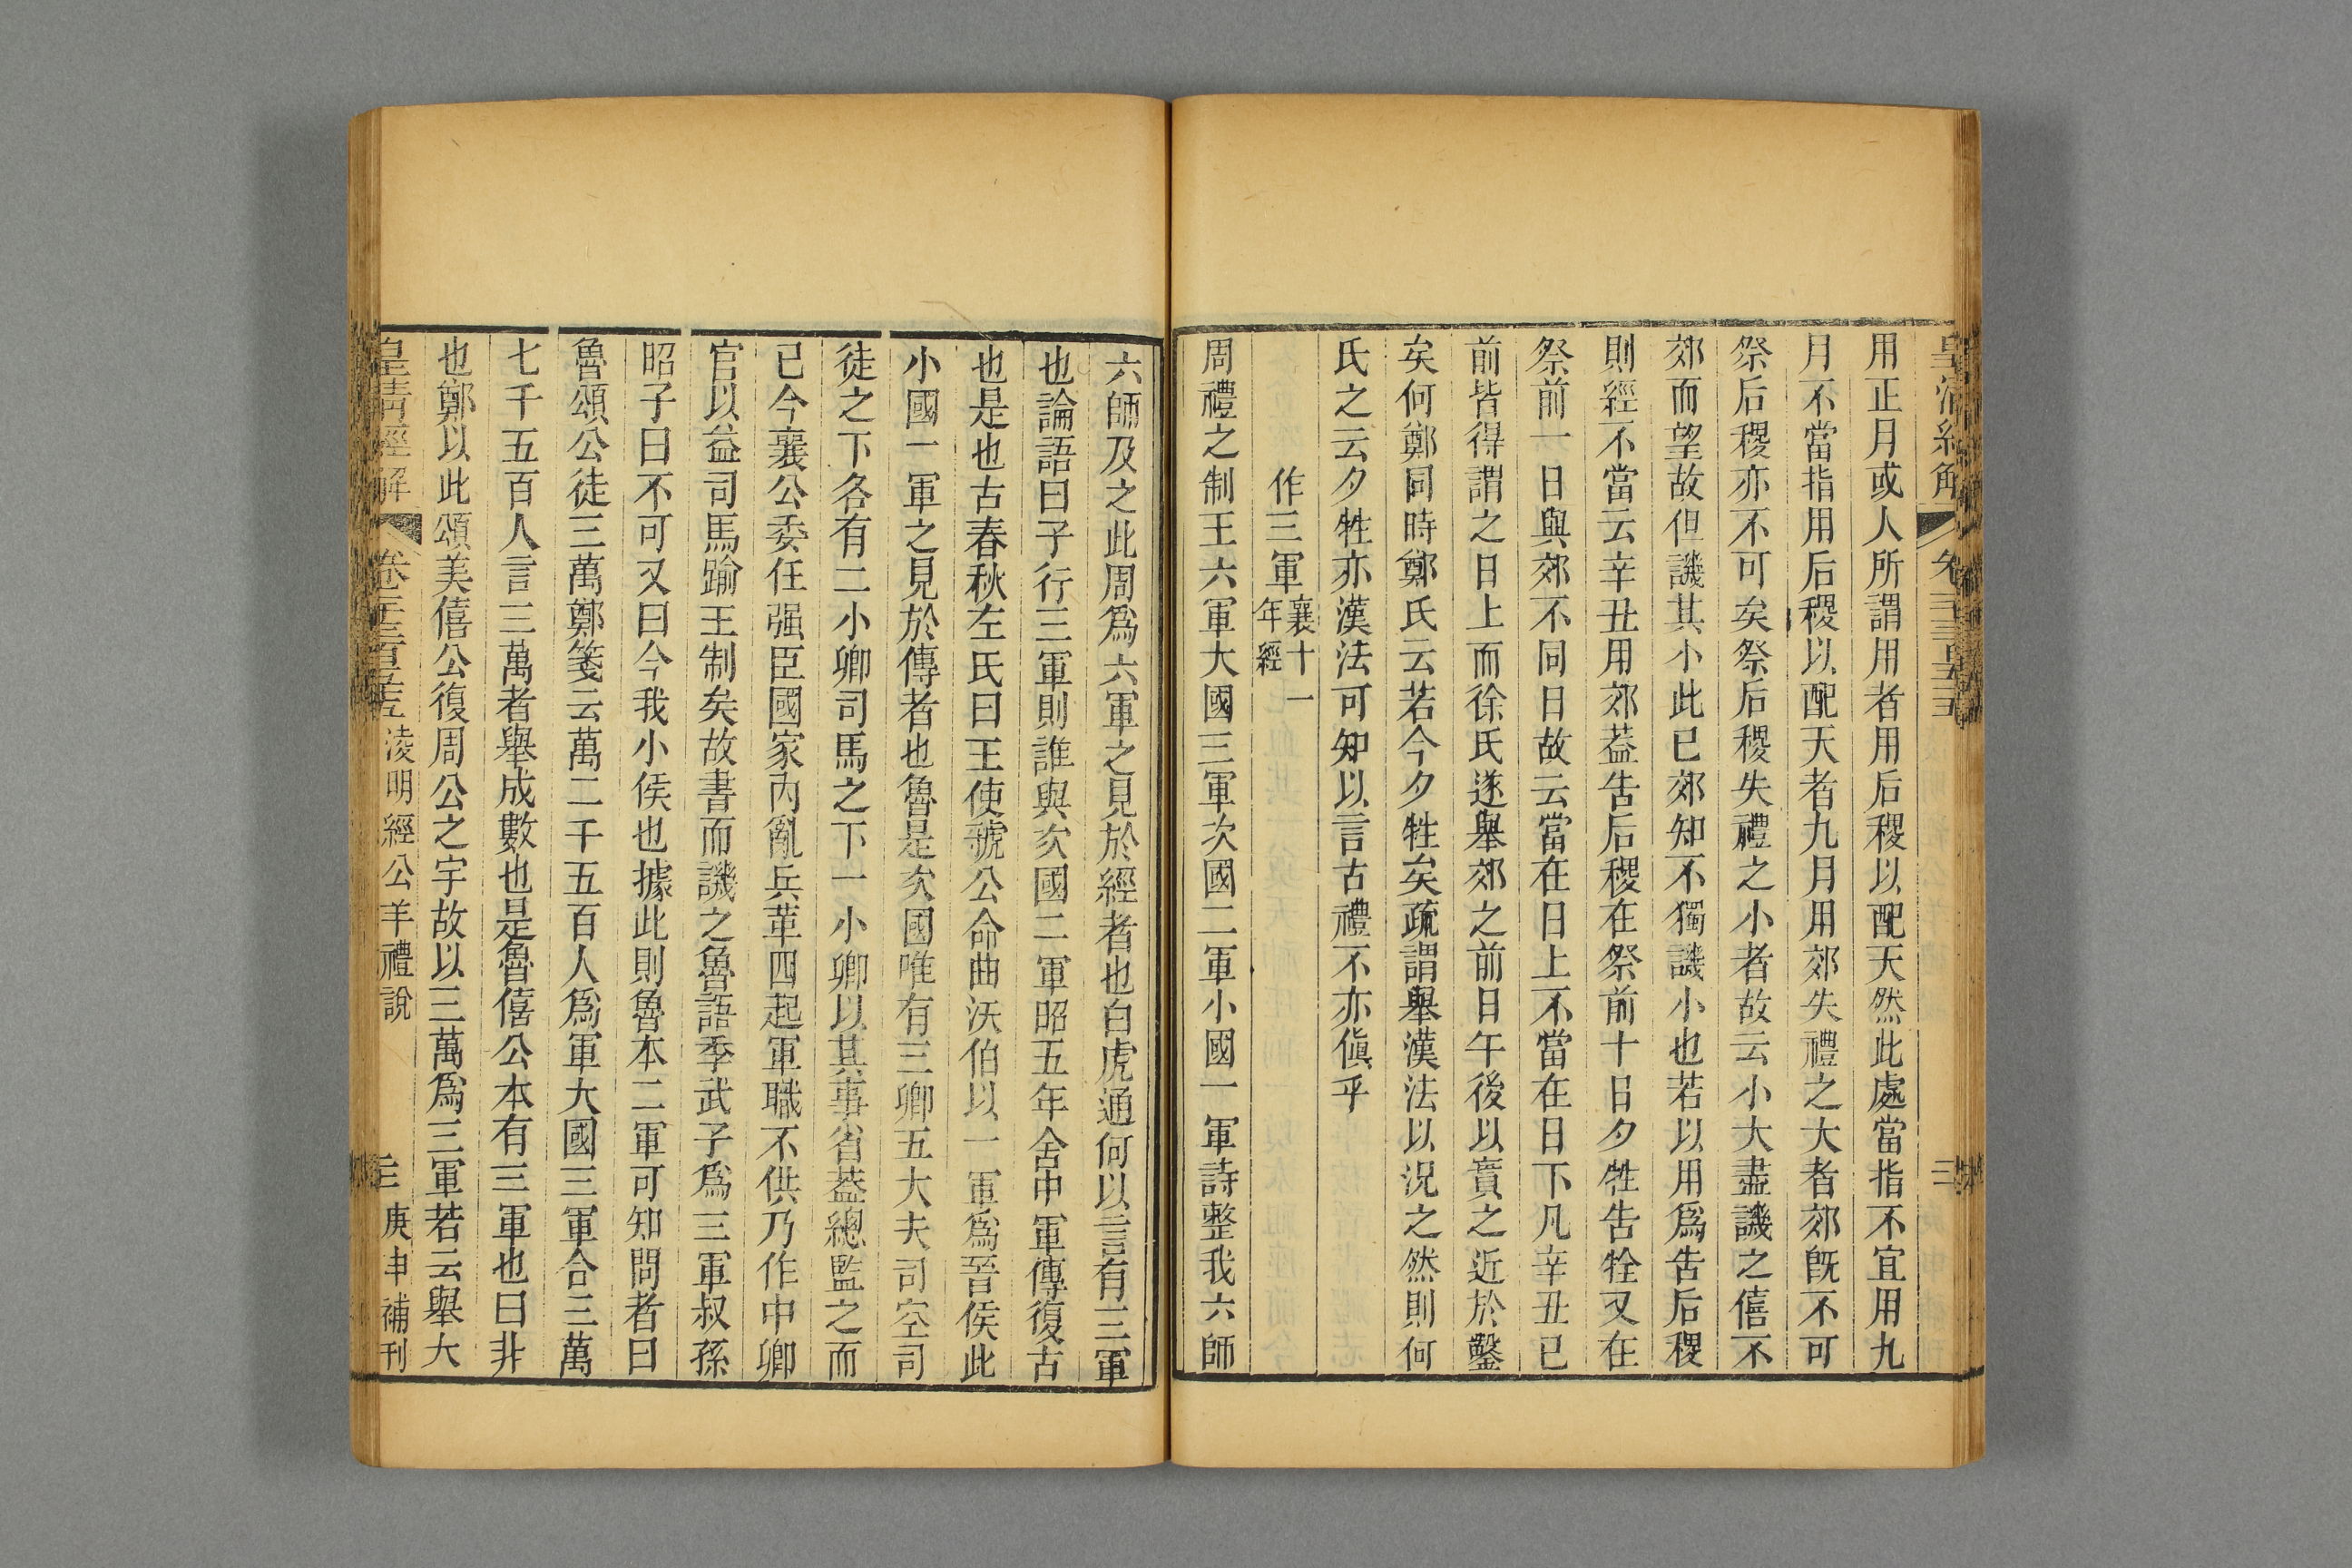 皇清經解
用正月或人所謂用者用后稷以配天然此處當指不宜用九
月不當指用后稷以配天者九月用郊失禮之大者郊旣不可
祭后稷亦不可矣祭后稷失禮之小者故云小大盡譏之僖不
郊而望故但譏其小此已郊知不獨譏小也若以用爲告后稷
則經不當云辛丑用郊葢告后稷在祭前十日夕牲告牷又在
祭前一日與郊不同日故云當在日上不當在日下凡辛丑已
前皆得謂之日上而徐氏遂舉郊之前日午後以實之近於鑿
矣何鄭同時鄭氏云若今夕牲矣疏謂舉漢法以況之然則何
氏之云夕牲亦漢法可知以言古禮不亦傎乎
作三軍襄十一年經
周禮之制王六軍大國三軍次國二軍小國一軍詩整我六師
六師及之此周爲六軍之見於經者也白虎通何以言有三軍
也論語曰子行三軍則誰與次國二軍昭五年舍中軍傳復古
也是也古春秋左氏曰王使虢公命曲沃伯以一軍爲晉侯此
小國一軍之見於傳者也魯是次國唯有三卿五大夫司空司
徒之下各有二小卿司馬之下一小卿以其事省葢總監之而
已今襄公委任强臣國家內亂兵革四起軍職不供乃作中卿
官以益司馬踰王制矣故書而譏之魯語季武子爲三軍叔孫
昭子曰不可又曰今我小侯也據此則魯本二軍可知問者曰
魯頌公徒三萬鄭箋云萬二千五百人爲軍大國三軍合三萬
七千五百人言三萬者舉成數也是魯僖公本有三軍也曰非
也鄭以此頌美僖公復周公之宇故以三萬爲三軍若云舉大
皇清經解 卷 凌明經公羊禮說 三 庚申補刊